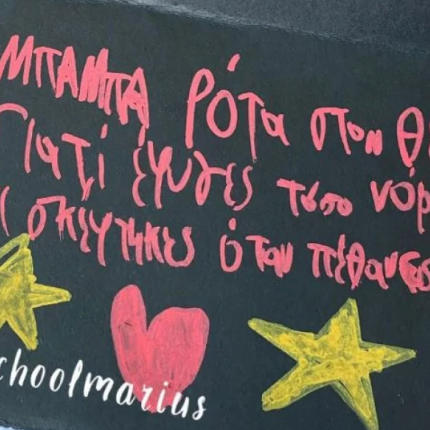 ΜΠΑΜΠΑ ρότα στον Θ
Γιατί έφυγες τοσο νόρ
σκέφτηκες όταν πέθανες
choolmarius